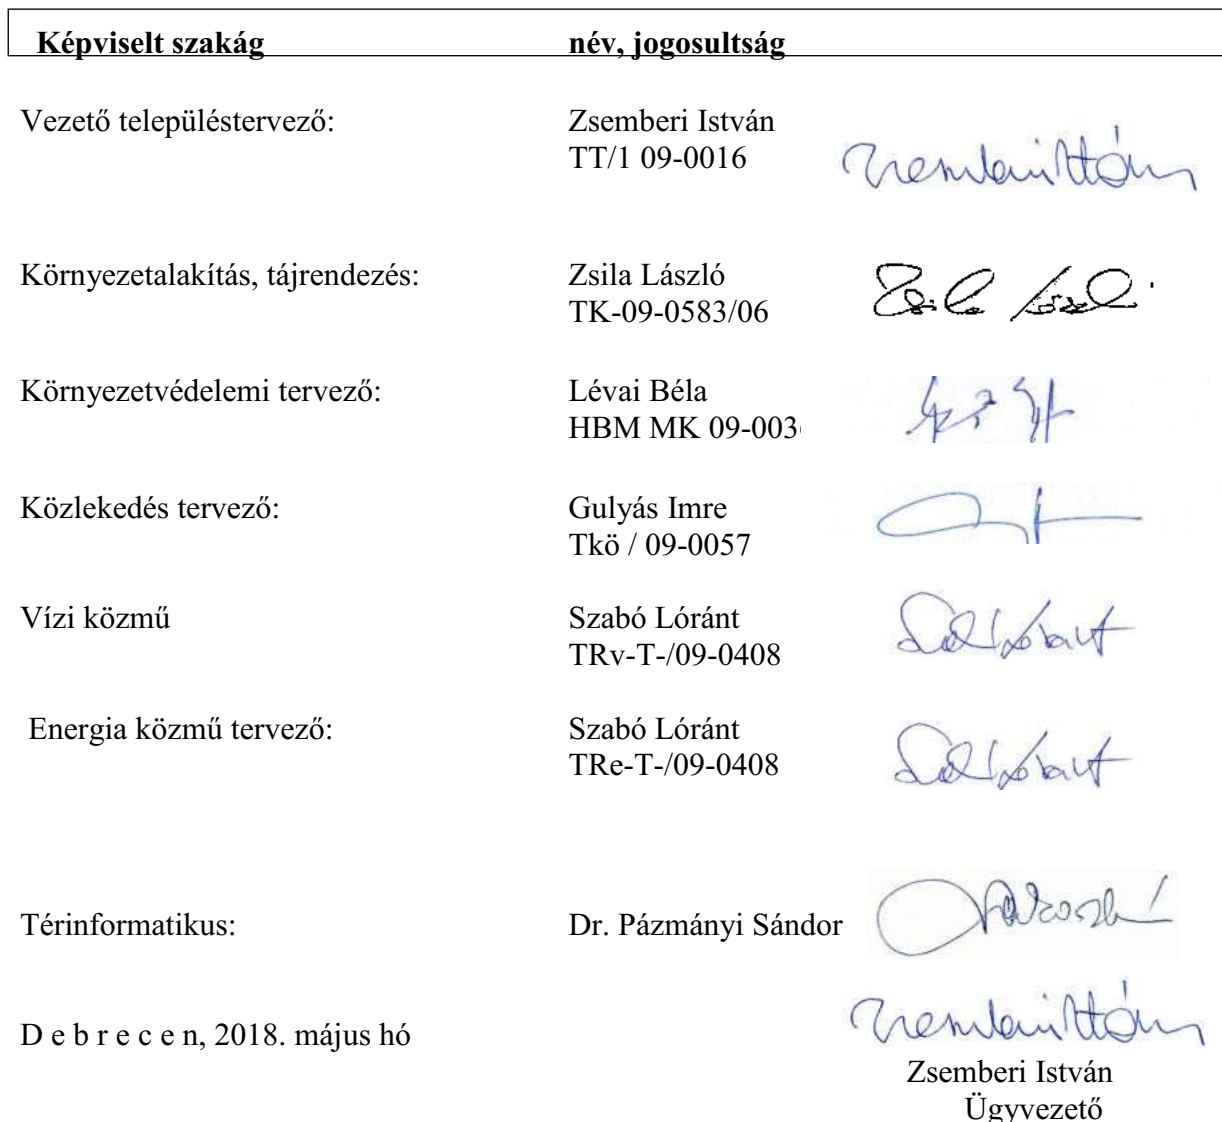 Képviselt szakág név, jogosultság
Vezető településtervező: Zsemberi István
TT/1 09-0016
Környezetalakítás, tájrendezés: Zsila László
TK-09-0583/06
Környezetvédelemi tervező: Lévai Béla
HBM MK 09-003
Közlekedés tervező: Gulyás Imre
Tkö / 09-0057
Vízi közmű Szabó Lóránt
TRv-T-/09-0408
Energia közmű tervező: Szabó Lóránt
TRe-T-/09-0408
Térinformatikus: Dr. Pázmányi Sándor
D e b r e c e n, 2018. május hó
Zsemberi István
Ügyvezető